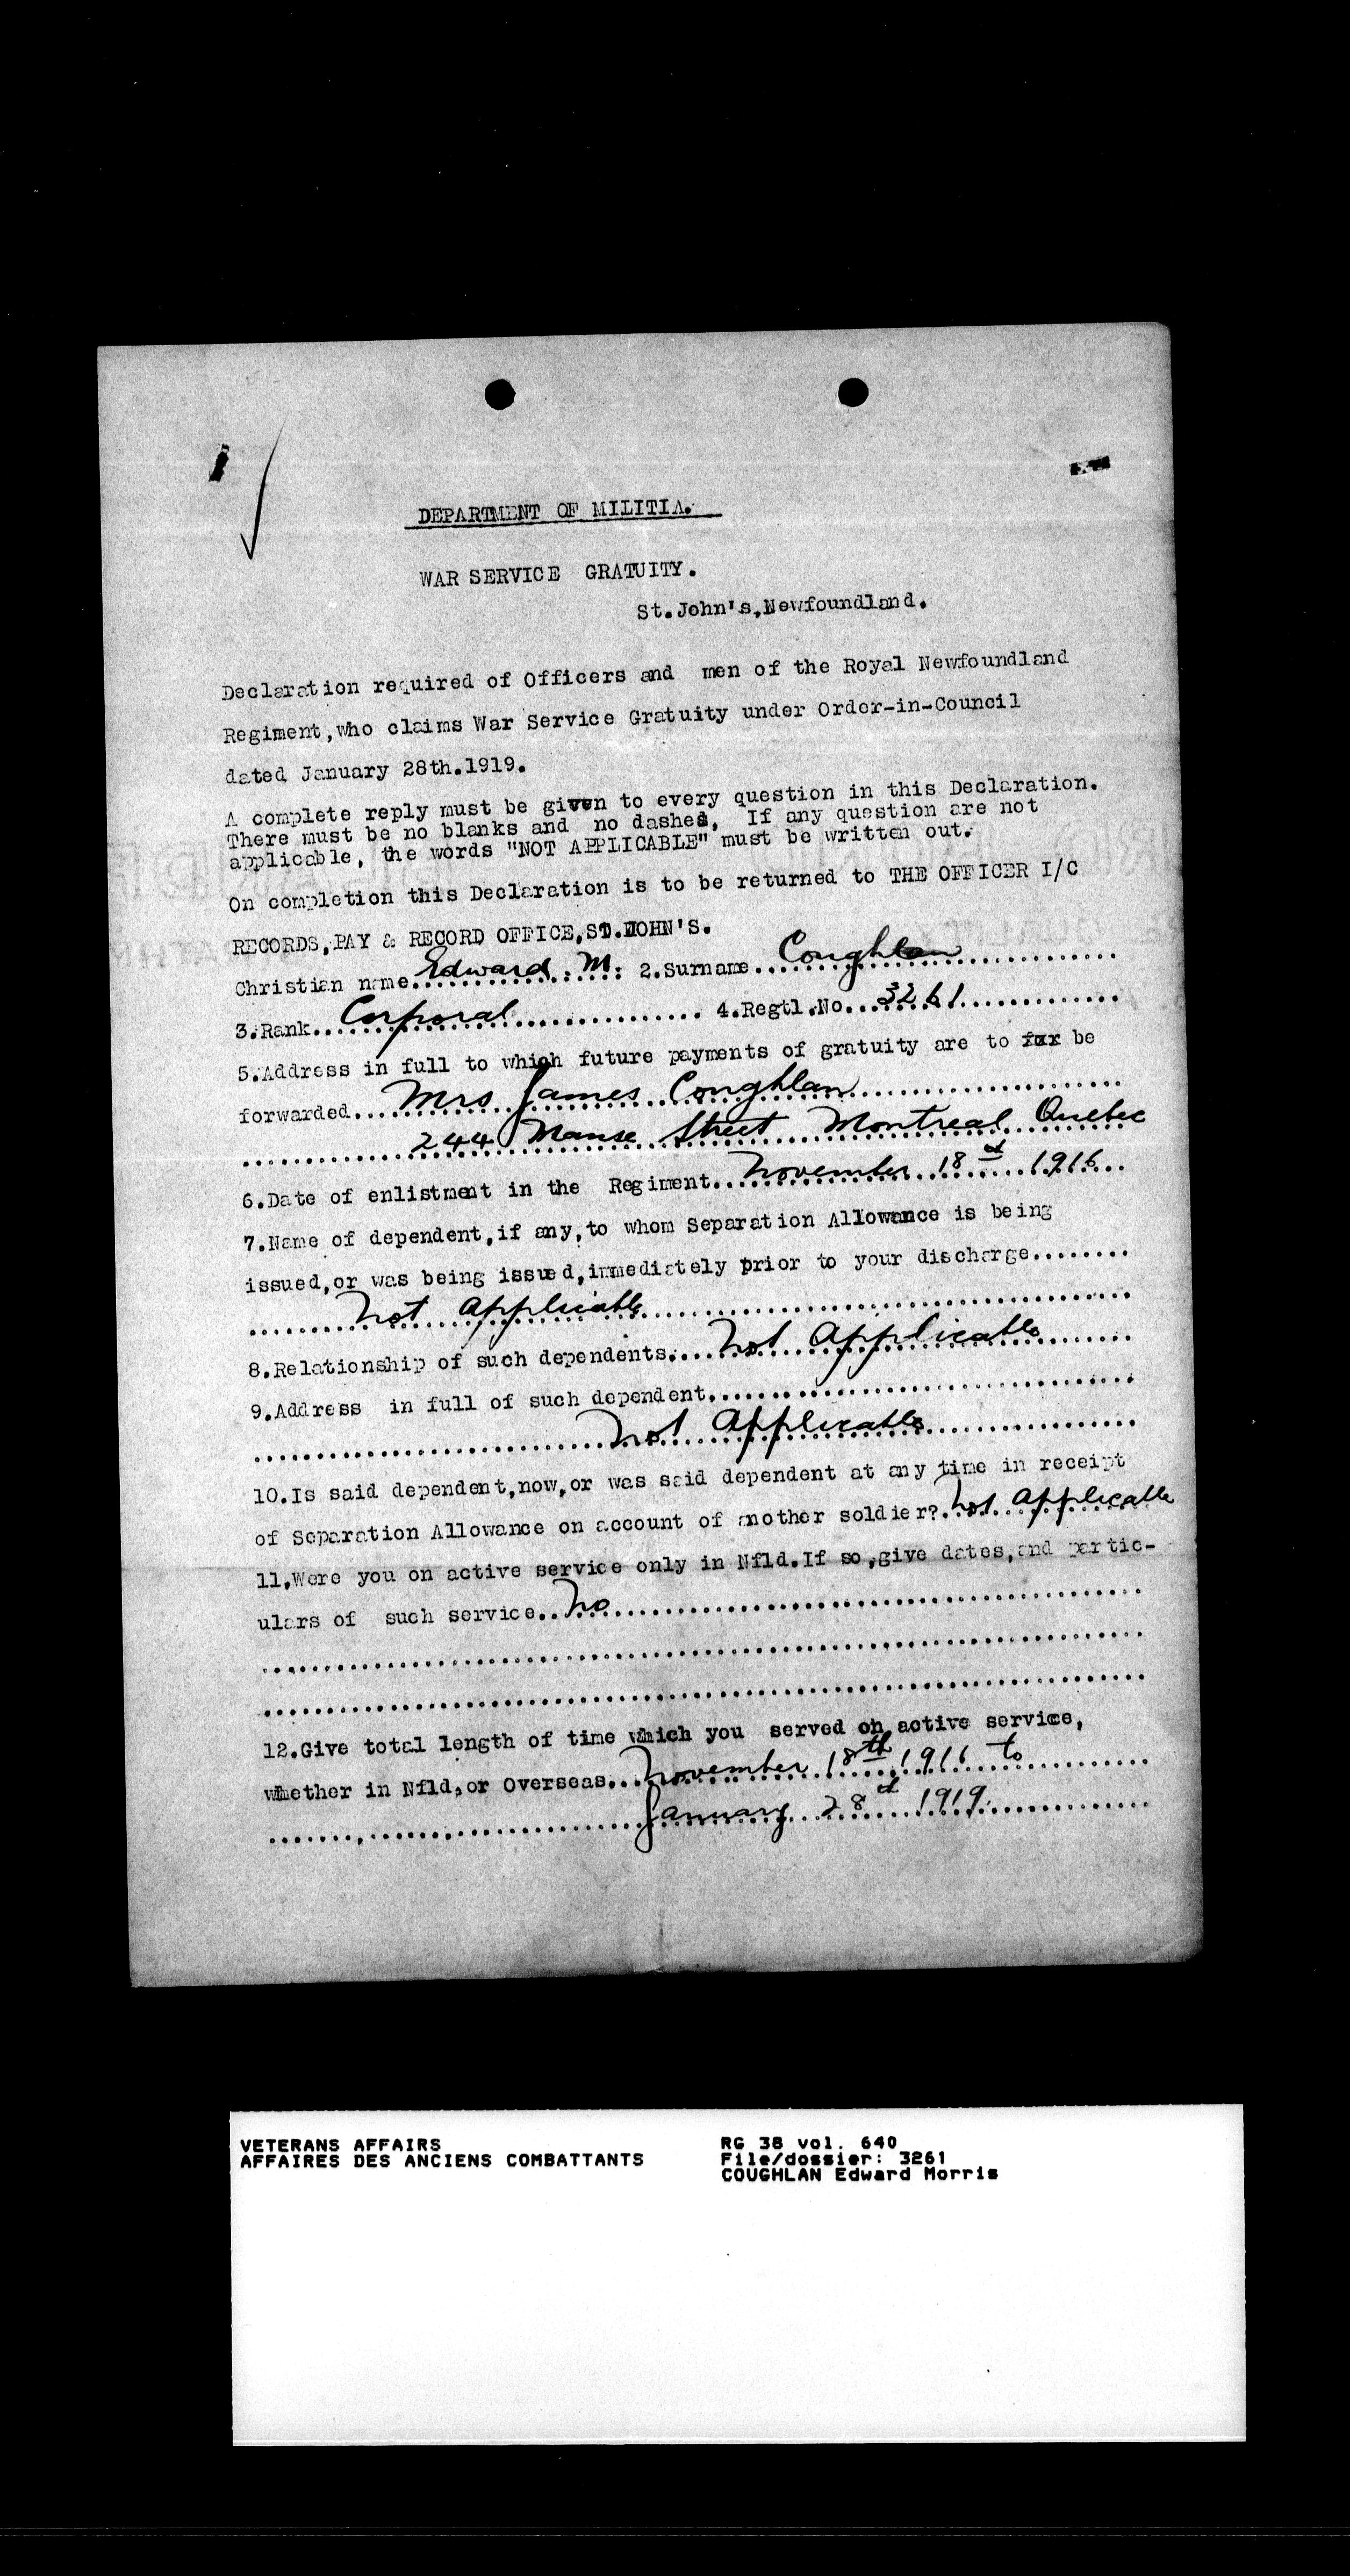 DEPARTMENT OF MILITIA.
WAR SERVICE GRATUITY.
St.John's,Newfoundland.
Declaration required of Officers and men of the Royal Newfoundland
Regiment,who claims War Service Gratuity under Order-in-Council
dated January 28th.1919.
A complete reply must be given to every question in this Declaration.
There must be no blanks and no dashes, If any question are not
applicable, the words "NOT APPLICABLE" must be written out.
On completion this Declaration is to be returned to THE OFFICER I/C
RECORDS,PAY & RECORD OFFICE,ST.JOHN'S.
Christian name Edward. M. 2.Surname Coughlan
3.Rank Corporal 4.Regtl.No. 3261
5.Address in full to which future payments of gratuity are to for be
forwarded Mrs James Coughlan
244 Manse Street Montreal Quebec
6.Date of enlistment in the Regiment November 18 1916
7.Name of dependent,if any,to whom Separation Allowance is being
issued,or was being issued,immediately prior to your discharge
not Applicable
8.Relationship of such dependents. not Applicable
9.Address in full of such dependent
not Applicable
10.Is said dependent,now,or was said dependent at any time in receipt
of Separation Allowance on account of another soldier? not Applicable
11.Were you on active service only in Nfld.If so,give dates,and partic-
ulars of such service no
12.Give total length of time which you served on active service,
whether in Nfld,or Overseas November 18th 1916 to
January 28 1919.
VETERANS AFFAIRS
AFFAIRES DES ANCIENS COMBATTANTS
RG 38 vol. 640
File/dossier: 3261
COUGHLAN Edward Morris